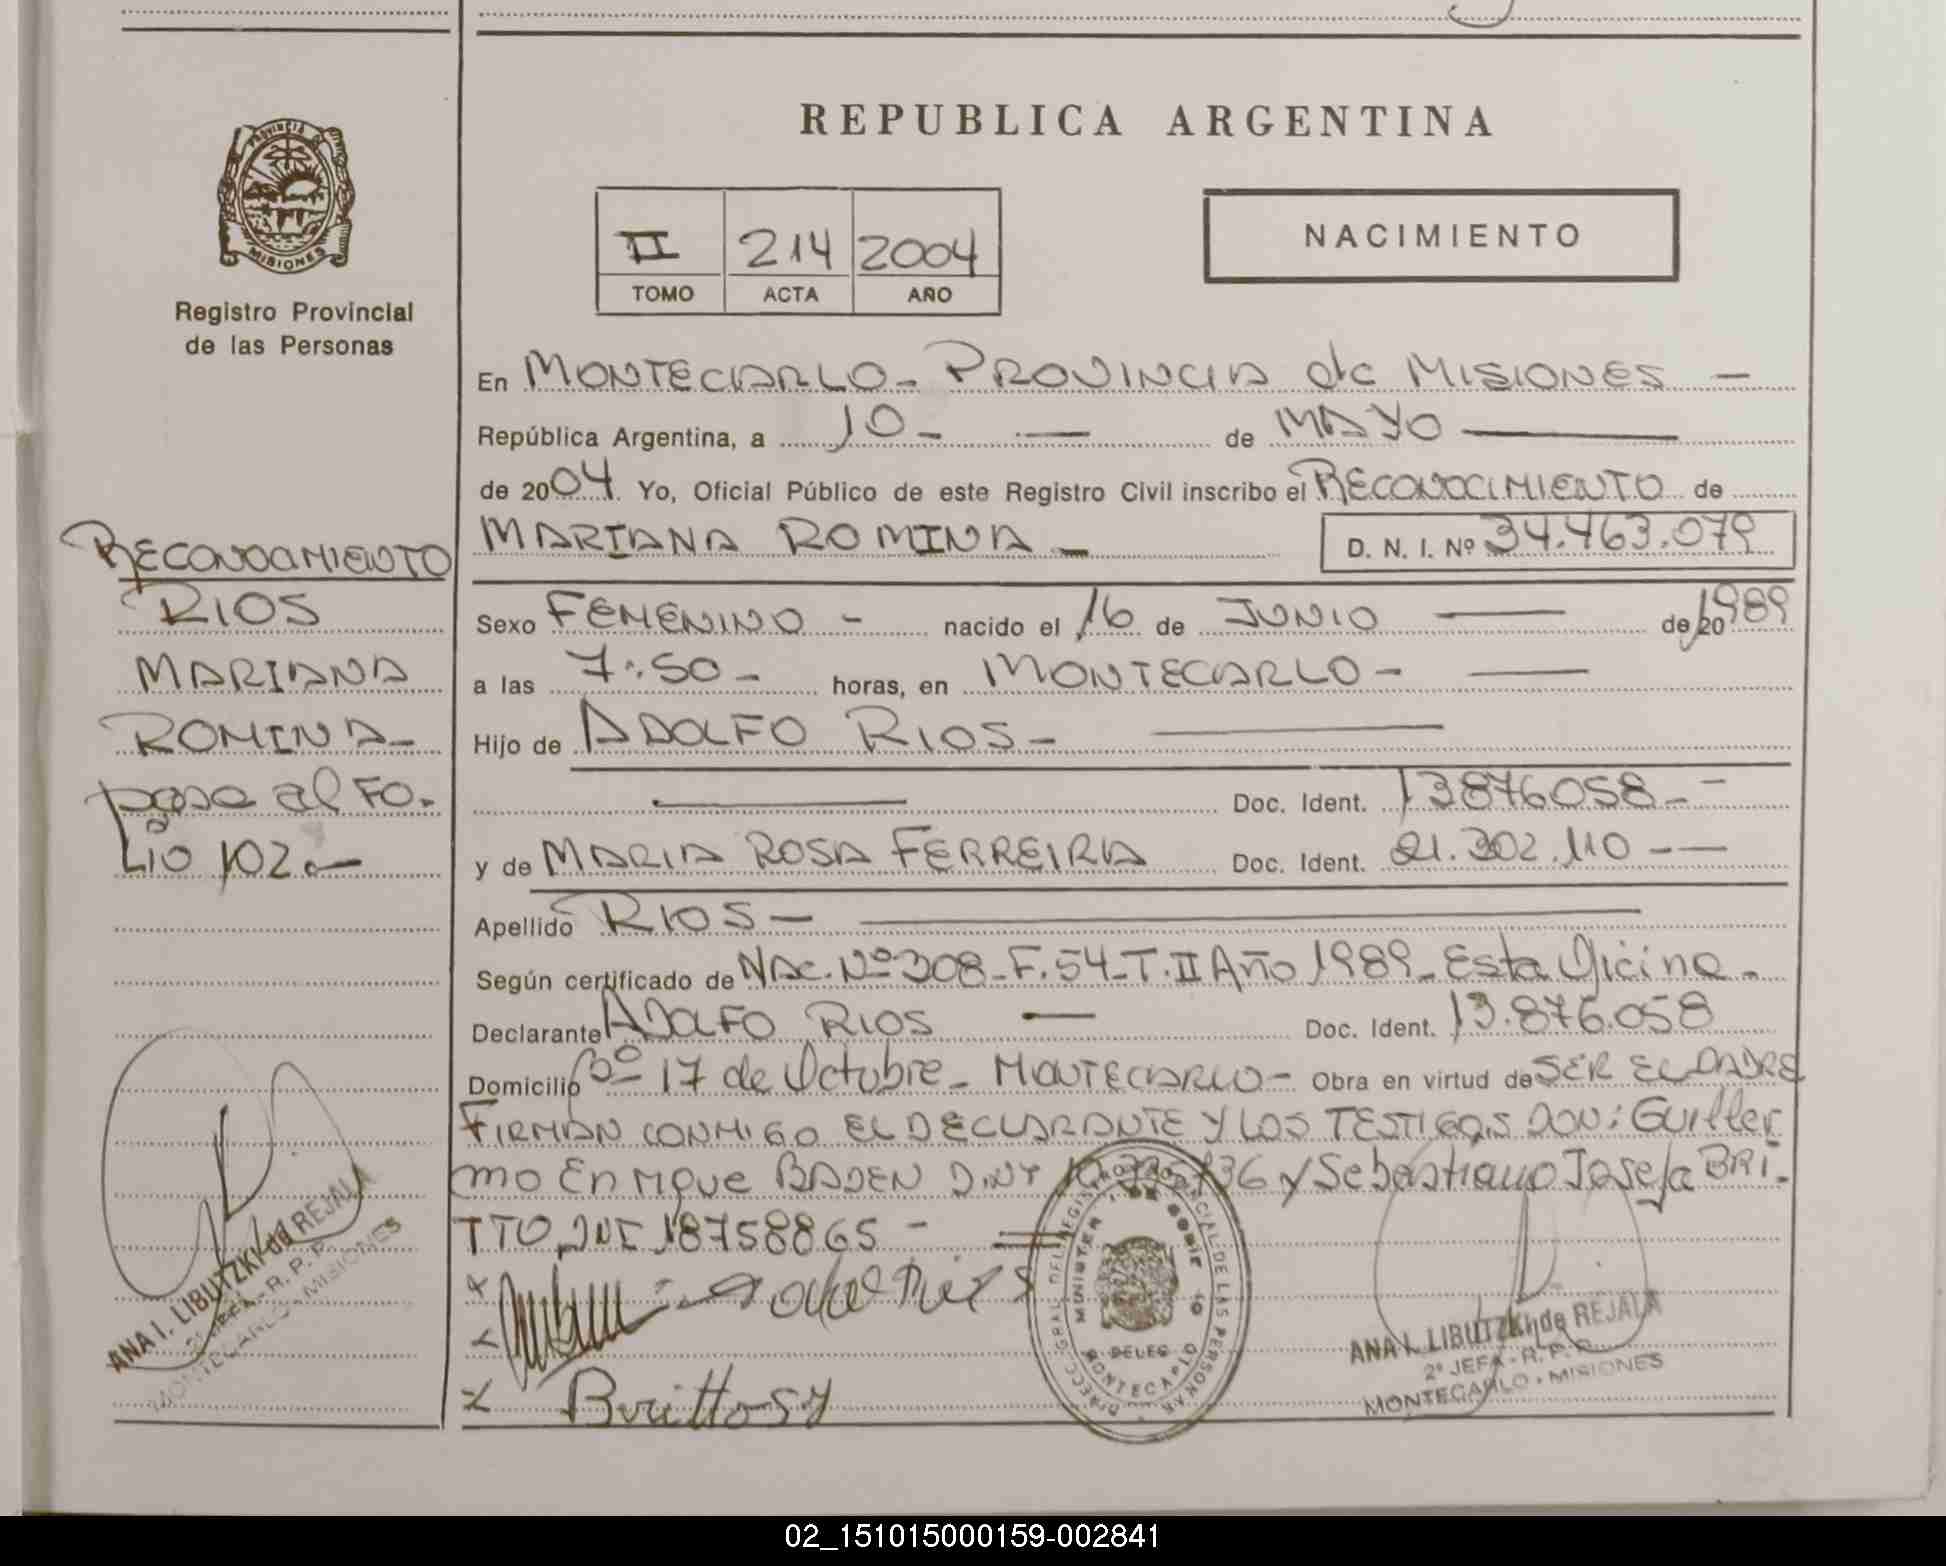 REPUBLICA ARGENTINA
PROVINCIA
MISIONES
Registro Provincial
de las Personas
II 214 2004
TOMO ACTA AÑO
NACIMIENTO
En MONTECARLO - PROVINCIA de MISIONES —
República Argentina, a 10 - — de MAYO —
de 2004. Yo, Oficial Público de este Registro Civil inscribo el RECONOCIMIENTO de
MARIANA ROMINA - D. N. I. Nº 34.463.079
Sexo FEMENINO - nacido el 16 de JUNIO — de 20 1989
a las 7:50 - horas, en MONTECARLO - —
Hijo de ADOLFO RIOS - —
— Doc. Ident. 13876058 - -
y de MARIA ROSA FERREIRA Doc. Ident. 21.302.110 - —
Apellido RIOS - —
Según certificado de NAC. Nº 308 - F. 54 - T. II Año 1989 - Esta Oficina -
Declarante ADOLFO RIOS — Doc. Ident. 13.876.058
Domicilio Bº 17 de Octubre - MONTECARLO - Obra en virtud de SER EL PADRE
FIRMAN CONMIGO EL DECLARANTE Y LOS TESTIGOS DON: Guiller
mo Enrique BADEN y Sebastiana Josefa BRI-
TTO DNI 18758865 - =
RECONOCIMIENTO
RIOS
MARIANA
ROMINA -
pasa al FO-
LIO 102 -
Brittosy
ANA I. LIBUTZKI de REJALA
2º JEFA - R. P. P.
MONTECARLO - MISIONES
DIRECC. GRAL. DEL REGISTRO PROVINCIAL DE LAS PERSONAS
DELEG
MONTECARLO
ANA I. LIBUTZKI de REJALA
2º JEFA - R. P. P.
MONTECARLO - MISIONES
02_151015000159-002841